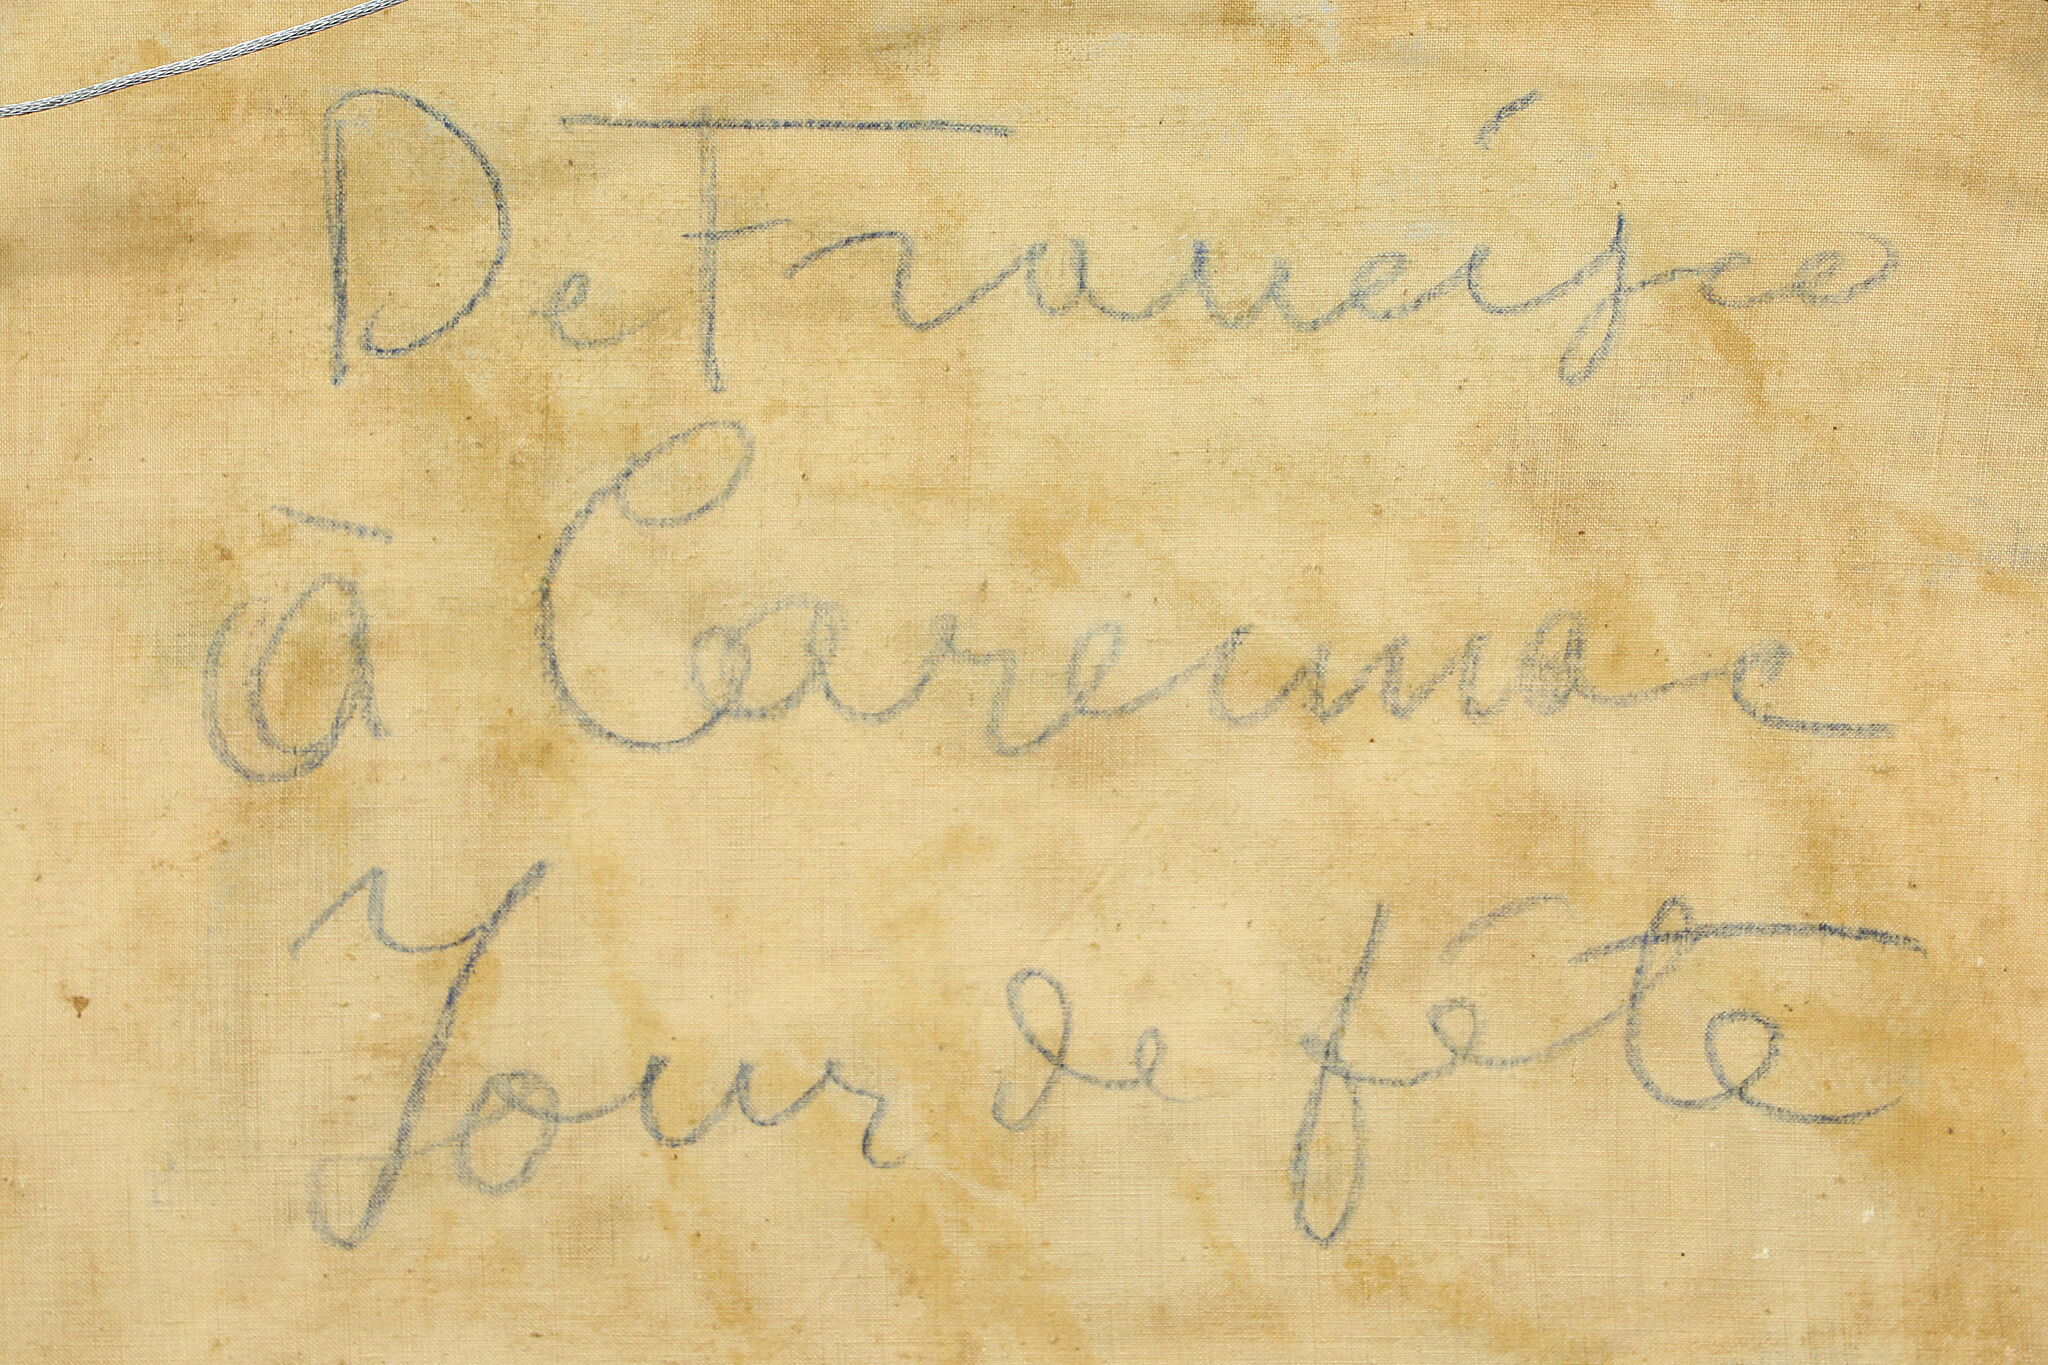 De Francisco
à Carennac
Jour de fête